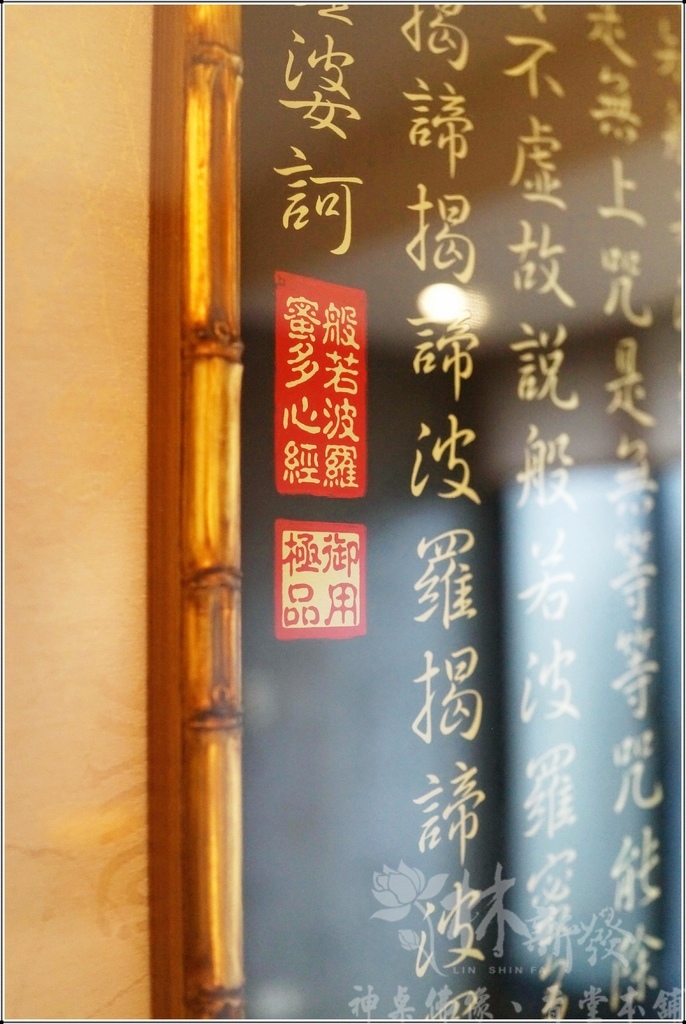 是無上咒是無等等咒能除
不虛故說般若波羅密多
揭諦揭諦波羅揭諦波
婆訶
般若波羅
蜜多心經
御用
極品
林新發
LIN SHIN FA
神桌佛像、香堂本舖